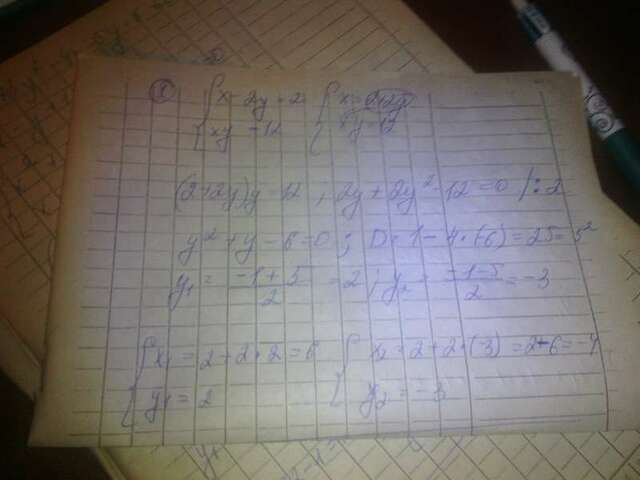 ⑧ { x - 2y = 2 { x = 2+2y
{ xy = 12 { xy = 12
(2+2y)y = 12 ; 2y + 2y² - 12 = 0 /: 2
y² + y - 6 = 0 ; D = 1 - 4·(-6) = 25 = 5²
y₁ = (-1+5)/2 = 2 ; y₂ = (-1-5)/2 = -3
{ x₁ = 2 + 2·2 = 6 { x₂ = 2 + 2·(-3) = 2-6 = -4
{ y₁ = 2 { y₂ = -3